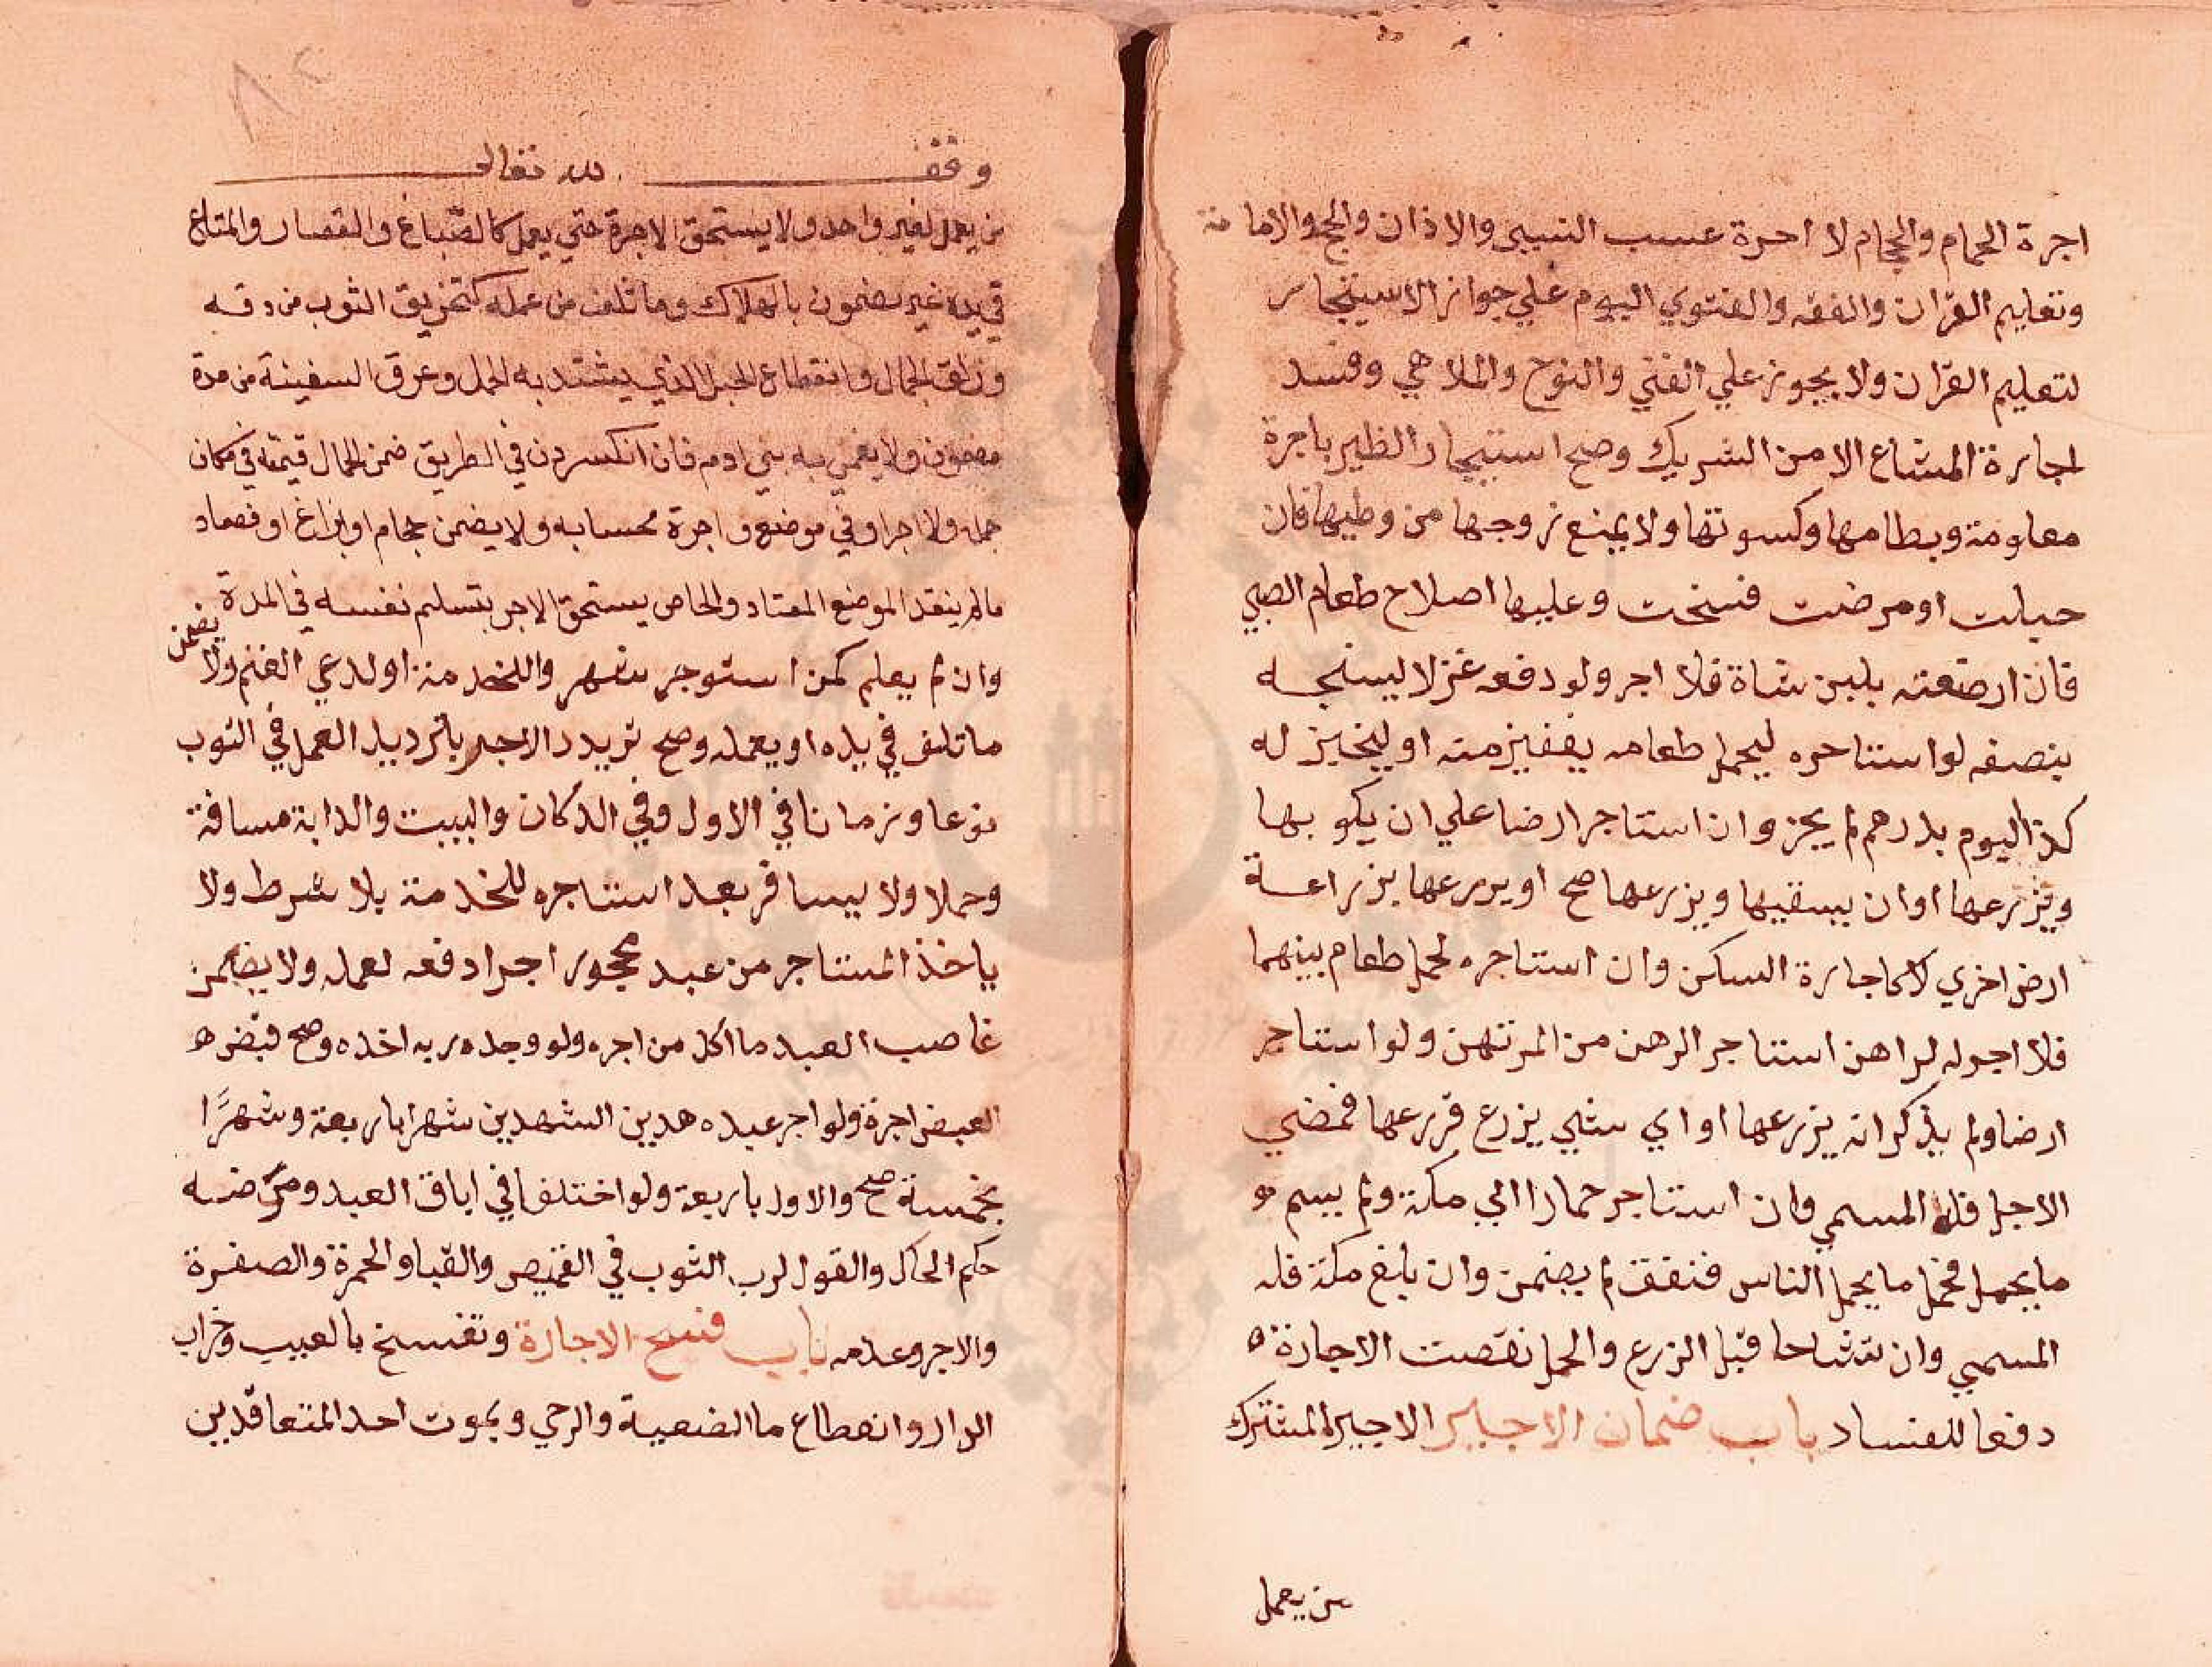 اجرة الحمام والحجام لا اجرة عسب التيس والاذان والحج والامامة
وتعليم القرآن والفقه والفتوي اليوم علي جواز الاستيجار
لتعليم القرآن ولا يجوز علي الغني والنوح والملاهي وفسد
اجارة المشاع الا من الشريك وصح استيجار الظير باجرة
معلومة وبطامها وكسوتها ولا يمنع زوجها من وطيها فان
حبلت او مرضت فسخت وعليها اصلاح طعام الصبي
فان ارضعته بلبن شاة فلا اجر ولو دفعه غزلا لينسجه
بنصفه لو استاجره ليحمل طعامه بقفيز منه او ليخبز له
كذا اليوم بدرهم لم يجز وان استاجر ارضا علي ان يكوبها
ويزرعها او ان يسقيها ويزرعها صح او يزرعها بزراعة
ارض اخري لا كاجارة السكن وان استاجره لحمل طعام بينهما
فلا اجر له لراهن استاجر الرهن من المرتهن ولو استاجر
ارضا ولم يذكر انه يزرعها او اي شيي يزرع فزرعها فمضي
الاجل فله المسمي وان استاجر حمارا الي مكة ولم يسم
ما يحمل فحمل ما يحمل الناس فنفق لم يضمن وان بلغ مكة فله
المسمي وان تشاحا قبل الزرع والحمل نقصت الاجارة
دفعا للفساد باب ضمان الاجير الاجير المشترك
من يعمل
وقف لله تعالي
من يعمل لغير واحد ولا يستحق الاجرة حتي يعمل كالصباغ والقصار والمتاع
في يده غير مضمون بالهلاك وما تلف من عمله كتخريق الثوب من دقه
وزلق الحمال وانقطاع الحبل الذي يشتد به الحمل وغرق السفينة من مدة
مضمون ولا يضمن به بني ادم فان انكسر دن في الطريق ضمن الحمال قيمته في مكان
حمله ولا اجر او في موضع واجرة بحسابه ولا يضمن حجام او بزاغ او فصاد
مالم ينقد الموضع المعتاد والخاص يستحق الاجر بتسليم نفسه في المدة
وان لم يعلم كمن استوجر شهر واللخدمة او لدعي الغنم ولا يضمن
ما تلف في يده او بعمله وصح ترديد الاجر بالترديد العمل في الثوب
نوعا وزمانا في الاول وفي الدكان والبيت والدابة مسافة
وحملا ولا يسافر بعبد استاجره للخدمة بلا شرط ولا
ياخذ المستاجر من عبد محجور اجرا دفعه لعمله ولا يضمن
غاصب العبد ما اكل من اجره ولو وجده ربه اخذه وصح قبض
العبض اجرة ولو اجر عبده هدين الشهدين شهرا باربعة وشهرًا
بخمسة صح والاول باربعة ولو اختلفا في اباق العبد ومرضه
حكم الحال والقول لرب الثوب في القميص والقبا والحمرة والصفرة
والاجر وعدمه باب فسح الاجارة وتفسخ بالعيب وخراب
الدار وانقطاع ما الضعية والرحي وبموت احد المتعاقدين